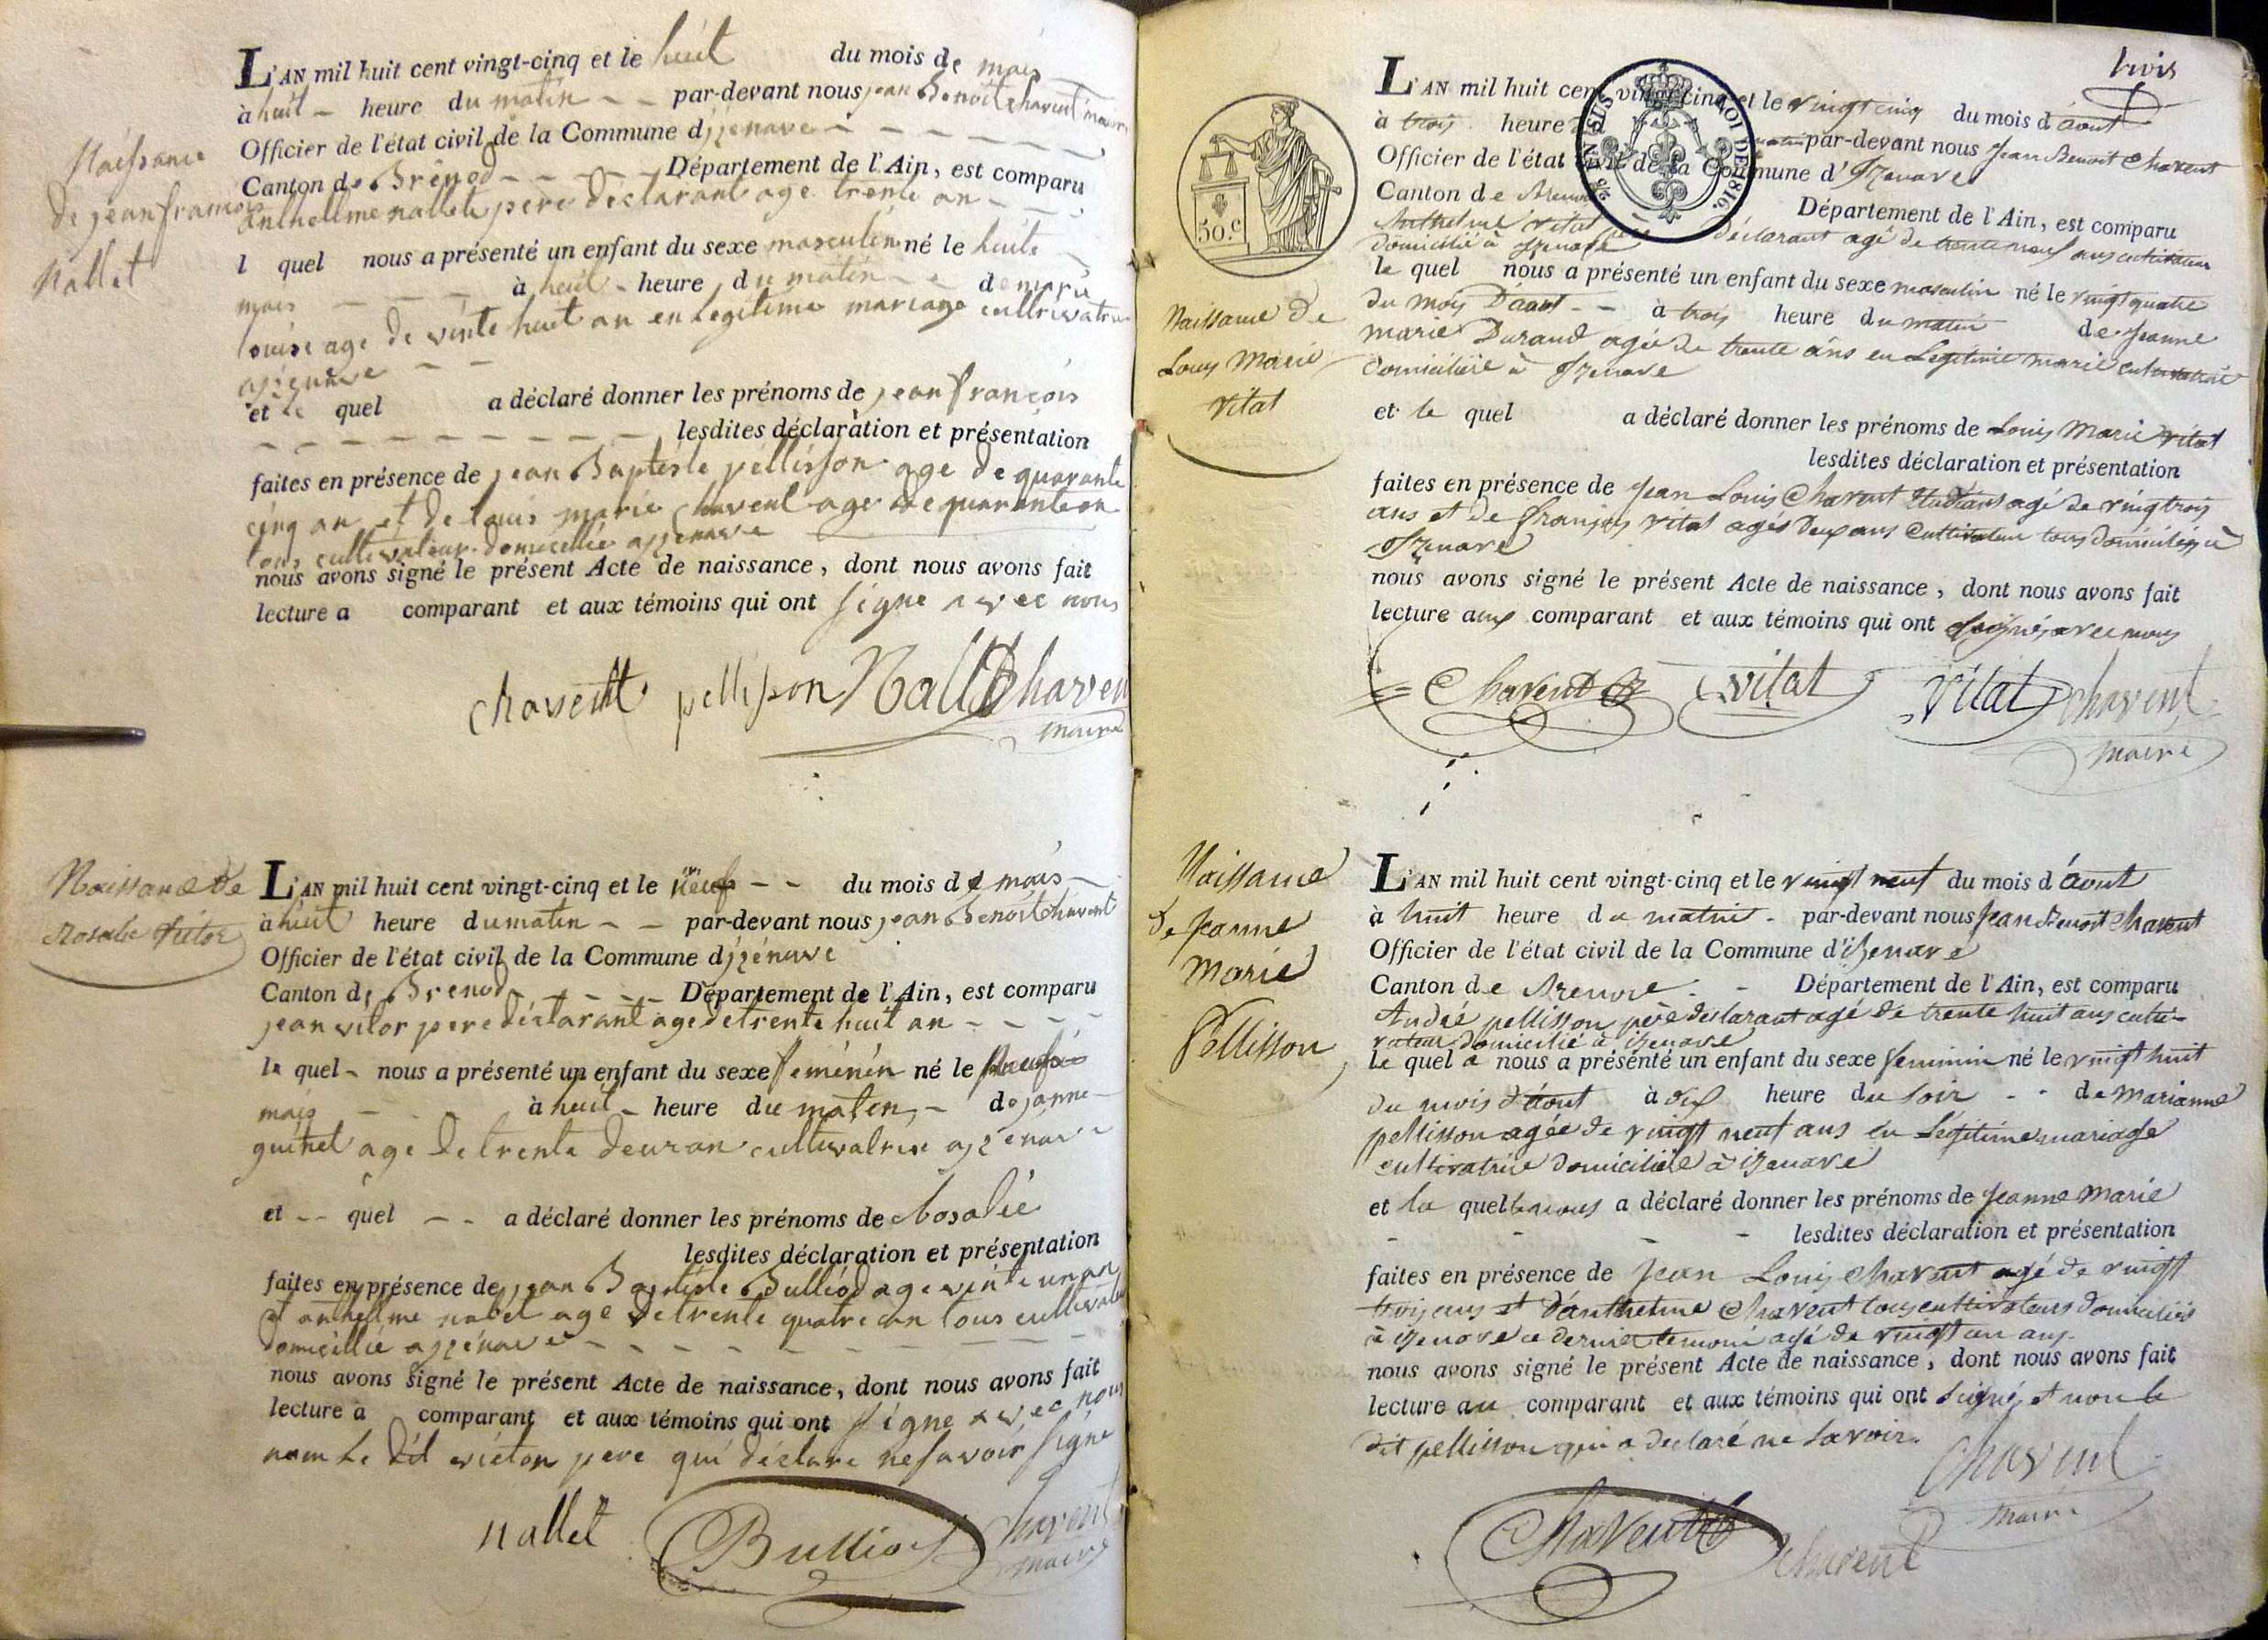 Naissance
de jean françois
Nallet
L'AN mil huit cent vingt-cinq et le huit du mois de mais
à huit heure du matin par-devant nous jean Benoit chavent maire
Officier de l'état civil de la Commune djzenave
Canton de Brenod Département de l'Ain, est comparu
anthellme nallet pere declarant age trente an
l quel nous a présenté un enfant du sexe masculin né le huite
mais à heuit heure du matin de marie
louise age de vinte huit an en legitime mariage cultrivatrice
ajzenave
et le quel a déclaré donner les prénoms de jean françois
lesdites déclaration et présentation
faites en présence de jean Baptiste pellisson age de quarante
cinq an et de louis marie chavent age de quarante an
tous cultivateur domicellié ajzenave
nous avons signé le présent Acte de naissance, dont nous avons fait
lecture a comparant et aux témoins qui ont signe avec nous
chavent pellisson Nallet Chavent
maire
Naissance de
Rosalie Vitor
L'AN mil huit cent vingt-cinq et le neuf du mois de mais
à huit heure du matin par-devant nous jean Benoit chavent
Officier de l'état civil de la Commune djzénave
Canton de Brenod Département de l'Ain, est comparu
jean vitor pere déclarant age de trente huit an
le quel nous a présenté un enfant du sexe feminén né le neuf
mais à huit heure du maten de janne
guinet age de trente deux an cultivatrise ajzenave
et quel a déclaré donner les prénoms de Rosalie
lesdites déclaration et présentation
faites en présence de jean Baptiste Bulliod age vinte un an
et anthellme nalet age de trente quatre an tous cultivateur
domicillié ajzénave
nous avons signé le présent Acte de naissance, dont nous avons fait
lecture à comparant et aux témoins qui ont signe avec nous
nom le dit vieton pere qui déclare ne savoir signe
nallet Bulliod Chavent
maire
trois
50.c
2/10 EN SUS LOI DE 1816.
Naissance de
Louis Marie
Vitat
L'AN mil huit cent vingt-cinq et le vingt cinq du mois d'août
à trois heure du matin par-devant nous Jean Benoit Chavent
Officier de l'état civil de la Commune d'Izenave
Canton de Brenod Département de l'Ain, est comparu
Anthelme Vitat père déclarant agé de trente neuf ans cultivateur
domicilié à Izenave
le quel nous a présenté un enfant du sexe masculin né le vingt quatre
du mois D'août à trois heure du matin de Jeanne
marie Durand agée de trente ans en Legitime marié cultivatrice
domiciliée à Izenave
et le quel a déclaré donner les prénoms de Louis Marie vitat
lesdites déclaration et présentation
faites en présence de Jean Louis Chavent Etudiant agé de vingt trois
ans et de François Vitat agés Deux ans Cultivateur tous domiciliés à
Izenave
nous avons signé le présent Acte de naissance, dont nous avons fait
lecture aux comparant et aux témoins qui ont signés avec nous
Chavent vitat Vitat Chavent
maire
Naissance
de Jeanne
Marie
Pellisson
L'AN mil huit cent vingt-cinq et le vingt neuf du mois d'août
à huit heure du matin par-devant nous Jean Benoit Chavent
Officier de l'état civil de la Commune d'izenave
Canton de Département de l'Ain, est comparu
André pellisson père déclarant agé de trente huit ans culti-
vateur domicilié à izenave
Le quel a nous a présenté un enfant du sexe feminin né le vingt huit
du mois d'août à dix heure du soir de Marianne
pellisson agée de vingt neuf ans en Légitime mariage
cultivatrice domiciliée à izenave
et la quelle nous a déclaré donner les prénoms de Jeanne Marie
lesdites déclaration et présentation
faites en présence de Jean Louis Chavent agé de vingt
trois ans et d'anthelme Chavent tous cultivateurs domiciliés
à izenave ce dernier temoin agé de vingt un ans
nous avons signé le présent Acte de naissance, dont nous avons fait
lecture au comparant et aux témoins qui ont signés et non le
dit pellisson qui a declaré ne savoir.
Chavent
maire
Chavent chavent